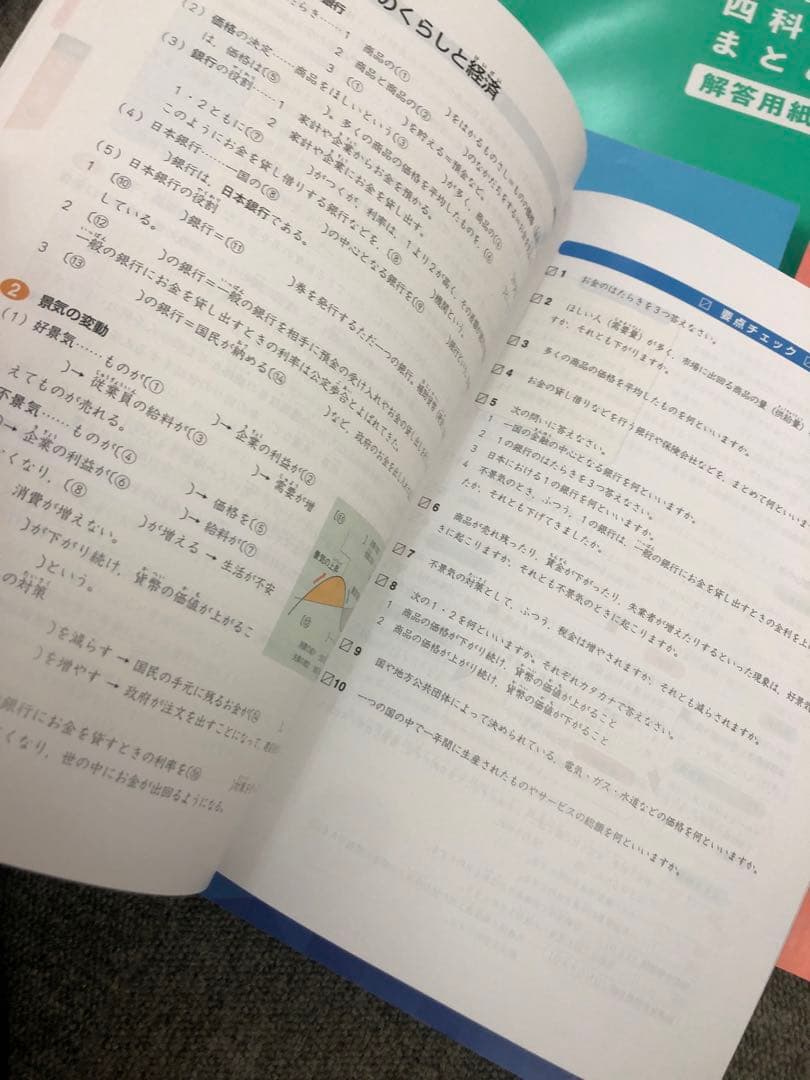 のくらしと経済
銀行
たらき…… 1 商品の(①
2 商品と商品の(②
3 (①
)をはかるものさし=ものの価格
)のなかだちをする
)を貯える=預金など。
(2) 価格の決定……商品をほしいという(③
)が多く、商品の(④
は、価格は(⑤
)。多くの商品の価格を平均したものを、(⑥
(3) 銀行の役割…… 1 家計や企業からお金を預かる。
2 家計や企業にお金を貸し出す。
1・2ともに(⑦
)がつくが、利率は、1より2が高く、
このようにお金を貸し借りする銀行などを、(⑧
)機関という。
(4) 日本銀行……一国の(⑧
)の中心となる銀行を(⑨
)銀行は、日本銀行である。
(5) 日本銀行の役割
1 (⑩
)銀行=(⑪
)券を発行するただ一つの銀行。
している。
2 (⑫
)の銀行=一般の銀行を相手に預金の受け入れやお金の貸し出し
一般の銀行にお金を貸し出すときの利率は公定歩合とよばれてきた。
3 (⑬
)の銀行=国民が納める(⑭
)など、政府のお金を出し入れ
2 景気の変動
(1) 好景気……ものが(①
)→ 企業の利益が(②
)→ 従業員の給料が(③
)→ 需要が増
えてものが売れる。
不景気……ものが(④
)→ 価格を(⑤
)→ 企業の利益が(⑥
)→ 給料が(⑦
くなり、(⑧
)が増える → 生活が不安
消費が増えない。
)が下がり続け、貨幣の価値が上がるこ
)という。
の対策
)を減らす → 国民の手元に残るお金が(⑭
)を増やす → 政府が注文を出すことになって、
銀行にお金を貸すときの利率を(⑯
くなり、世の中にお金が出回るようになる。
(⑬
景気の上昇
四科
まと
解答用紙
要点チェック
1 お金のはたらきを3つ答えなさい。
2 ほしい人(需要量)が多く、市場に出回る商品の量(供給量)
すか、それとも下がりますか。
3 多くの商品の価格を平均したものを何といいますか。
4 お金の貸し借りなどを行う銀行や保険会社などを、まとめて何といいま
5 次の問いに答えなさい。
1 一国の金融の中心となる銀行を何といいますか。
2 1の銀行のはたらきを3つ答えなさい。
3 日本における1の銀行を何といいますか。
4 不景気のとき、ふつう、1の銀行は、一般の銀行にお金を貸し出すときの金利を上げ
たか、それとも下げてきましたか。
6 商品が売れ残ったり、賃金が下がったり、失業者が増えたりするといった現象は、好景気
きに起こりますか、それとも不景気のときに起こりますか。
7 不景気の対策として、ふつう、税金は増やされますか、それとも減らされますか。
8 次の1・2を何といいますか。それぞれカタカナで答えなさい。
1 商品の価格が下がり続け、貨幣の価値が上がること
2 商品の価格が上がり続け、貨幣の価値が下がること
9 国や地方公共団体によって決められている、電気・ガス・水道などの価格を何といいますか。
10 一つの国の中で一年間に生産されたものやサービスの総額を何といいますか。